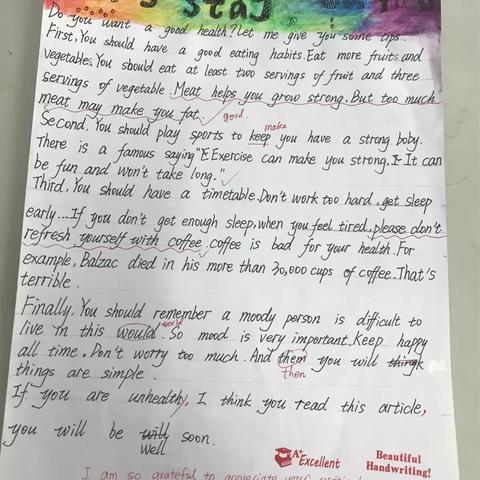 stay
Do you want a good health? Let me give you some tips.
First, You should have a good eating habits. Eat more fruits and
vegetables. You should eat at least two servings of fruit and three
servings of vegetable. Meat helps you grow strong. But too much
meat may make you fat. good.
make
Second, You should play sports to keep you have a strong boby.
There is a famous saying "E Exercise can make you strong. I It can
be fun and won't take long."
Third, You should have a timetable. Don't work too hard, get sleep
early... If you don't get enough sleep, when you feel tired, please don't
refresh yourself with coffee, coffee is bad for your health. For
example, Balzac died in his more than 30,000 cups of coffee. That's
terrible.
Finally, You should remember a moody person is difficult to
live in this would world. So mood is very important. Keep happy
all time, Don't worry too much. And them you will think
Then
things are simple.
If you are unhealthy, I think you read this article,
you will be will soon.
well
A+ Excellent
Beautiful
Handwriting!
I am so grateful to appreciate your